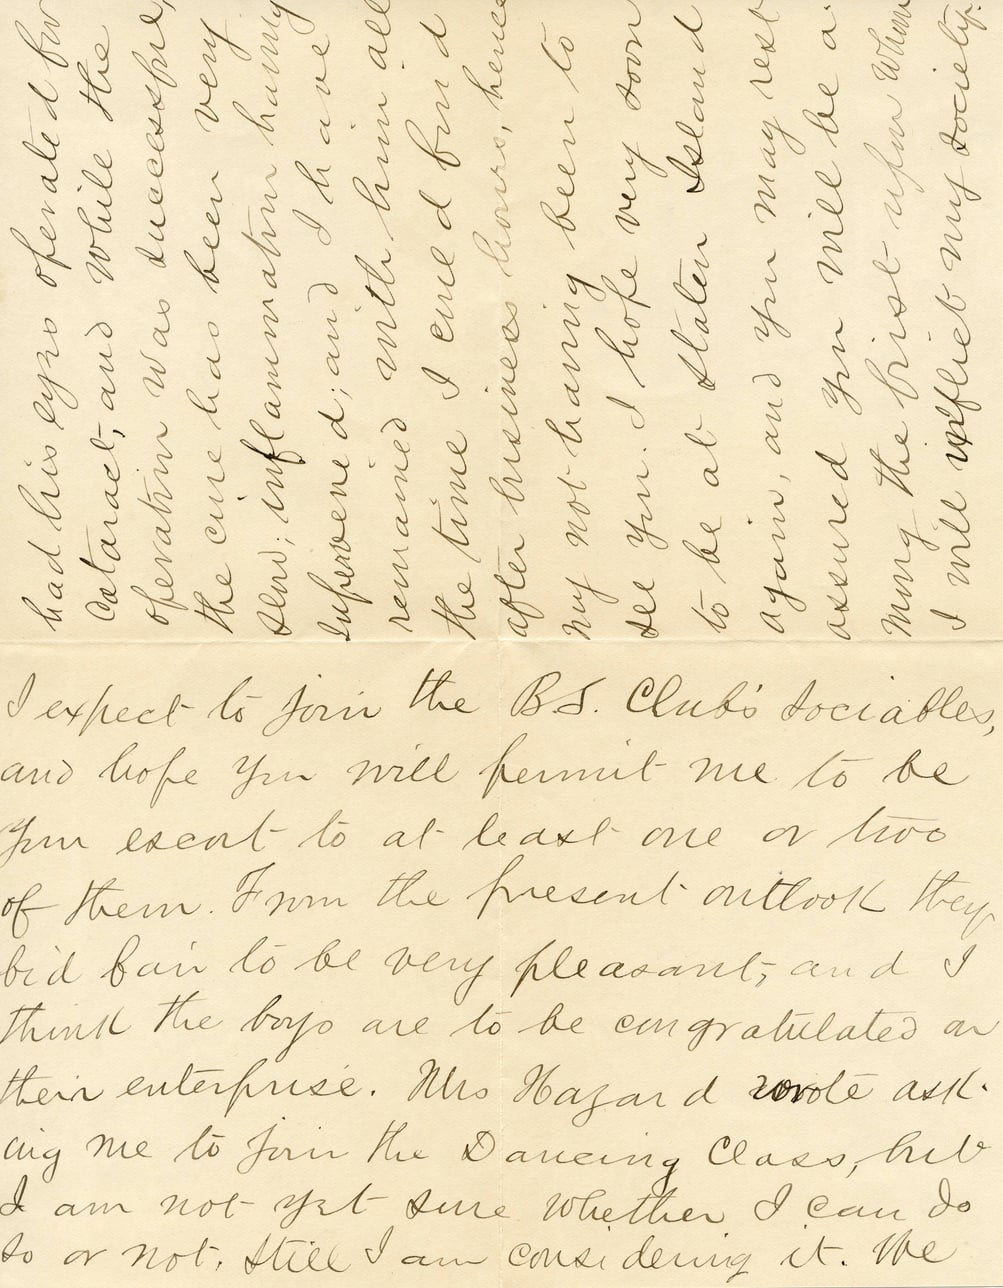 had his eyes operated for
Cataract, and while the
operation was successful,
the cure has been very
slow; inflammation having
supervened; and I have
remained with him all
the time I could find
after business hours, hence
my not having been to
see you. I hope very soon
to be at Staten Island
again, and you may rest
assured you will be a-
mong the first upon whom
I will inflict my society.
I expect to join the B.S. Club's Sociables,
and hope you will permit me to be
your escort to at least one or two
of them. From the present outlook they
bid fair to be very pleasant, and I
think the boys are to be congratulated on
their enterprise. Mrs Hazard wrote ask-
ing me to join the Dancing Class, but
I am not yet sure whether I can do
so or not. Still I am considering it. We